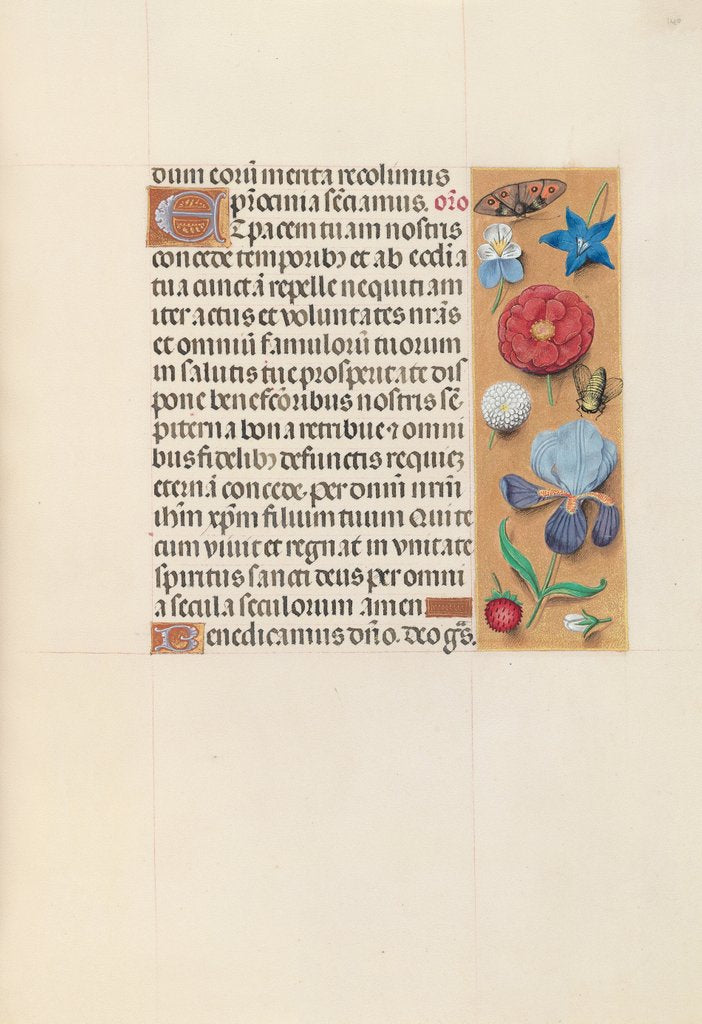 140
dum eorū merita recolimus
pr̄ocinia sēciamus. or̄o
Et pacem tuam nostris
concede temporibꝫ et ab ecclīa
tua cunctā repelle nequitiam
iter actus et voluntates nr̄as
et omniū famulorū tuorum
in salutis tue prosperitate dis
pone benefcōribus nostris sē
piterna bona retribue ⁊ omni
bus fidelibꝫ defunctis requiez
eternā concede. per dnm̄ nrm̄
ihm̄ xp̄m filium tuum Qui te
cum viuit et regnat in vnitate
spiritus sancti deus per omni
a secula seculorum amen
Benedicamus dn̄o. deo gr̄s.